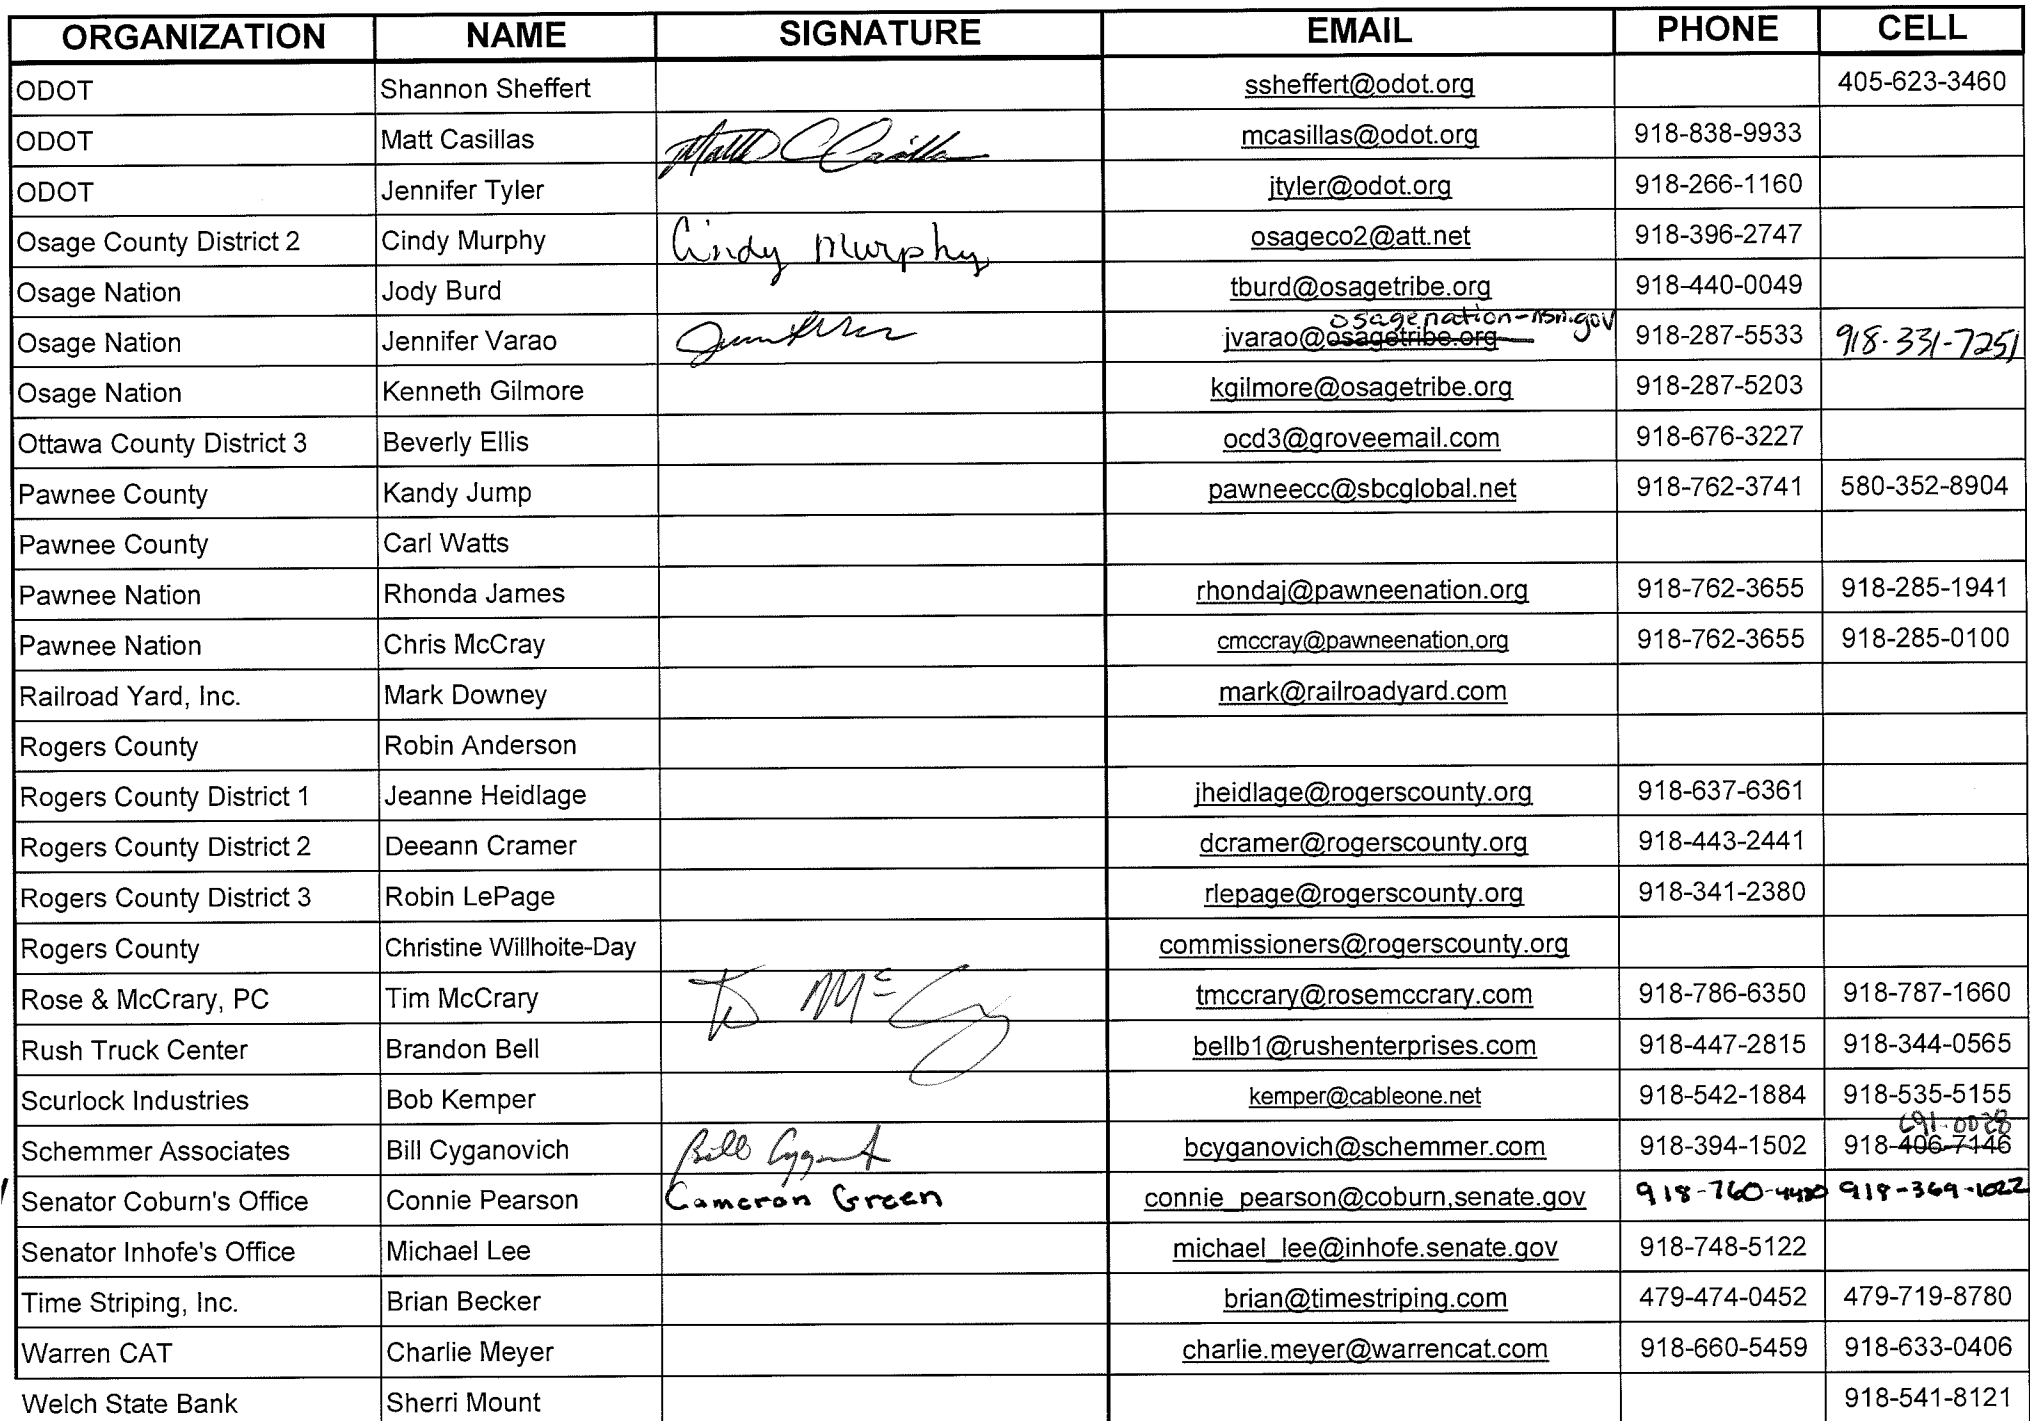 ORGANIZATION NAME SIGNATURE EMAIL PHONE CELL
ODOT Shannon Sheffert ssheffert@odot.org 405-623-3460
ODOT Matt Casillas Matt C Casillas mcasillas@odot.org 918-838-9933
ODOT Jennifer Tyler jtyler@odot.org 918-266-1160
Osage County District 2 Cindy Murphy Cindy Murphy osageco2@att.net 918-396-2747
Osage Nation Jody Burd tburd@osagetribe.org 918-440-0049
osagenation-nsn.gov
Osage Nation Jennifer Varao jvarao@osagetribe.org 918-287-5533 918-331-7251
Osage Nation Kenneth Gilmore kgilmore@osagetribe.org 918-287-5203
Ottawa County District 3 Beverly Ellis ocd3@groveemail.com 918-676-3227
Pawnee County Kandy Jump pawneecc@sbcglobal.net 918-762-3741 580-352-8904
Pawnee County Carl Watts
Pawnee Nation Rhonda James rhondaj@pawneenation.org 918-762-3655 918-285-1941
Pawnee Nation Chris McCray cmccray@pawneenation,org 918-762-3655 918-285-0100
Railroad Yard, Inc. Mark Downey mark@railroadyard.com
Rogers County Robin Anderson
Rogers County District 1 Jeanne Heidlage jheidlage@rogerscounty.org 918-637-6361
Rogers County District 2 Deeann Cramer dcramer@rogerscounty.org 918-443-2441
Rogers County District 3 Robin LePage rlepage@rogerscounty.org 918-341-2380
Rogers County Christine Willhoite-Day commissioners@rogerscounty.org
Rose & McCrary, PC Tim McCrary tmccrary@rosemccrary.com 918-786-6350 918-787-1660
Rush Truck Center Brandon Bell bellb1@rushenterprises.com 918-447-2815 918-344-0565
Scurlock Industries Bob Kemper kemper@cableone.net 918-542-1884 918-535-5155
691-0028
Schemmer Associates Bill Cyganovich Bill bcyganovich@schemmer.com 918-394-1502 918-406-7146
Senator Coburn's Office Connie Pearson Cameron Green connie_pearson@coburn,senate.gov 918-760-4420 918-369-1022
Senator Inhofe's Office Michael Lee michael_lee@inhofe.senate.gov 918-748-5122
Time Striping, Inc. Brian Becker brian@timestriping.com 479-474-0452 479-719-8780
Warren CAT Charlie Meyer charlie.meyer@warrencat.com 918-660-5459 918-633-0406
Welch State Bank Sherri Mount 918-541-8121